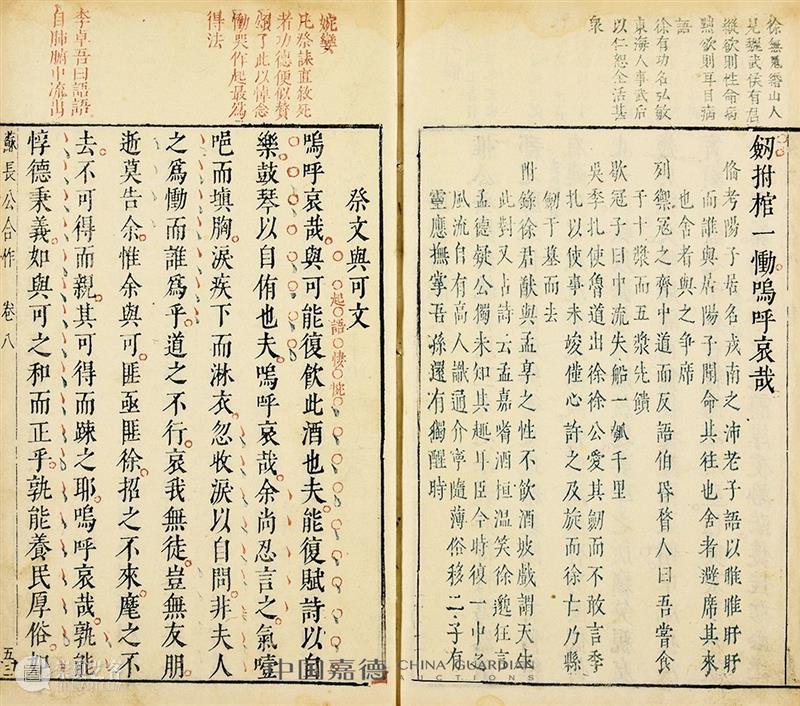 徐無鬼緡山人
見魏武侯有君
縱欲則性命病
黜欲則耳目病
語
徐有功名弘敏
東海人事武后
以仁恕全活甚
衆
劒拊棺一慟嗚呼哀哉
脩考陽子居名戎南之沛老子語以睢睢盱盱
而誰與居陽子聞命其往也舍者避席其來
也舍者與之争席
列禦寇之齊中道而反語伯昏瞀人曰吾嘗食
于十漿而五漿先饋
歇冠子曰中流失船一瓠千里
吳季扎使魯道出徐徐公愛其劒而不敢言季
扎以使事未竣僮心許之及旋而徐亡乃縣
劒于墓而去
附錄徐君猷與孟享之性不飲酒坡戲謂天生
此對又占詩云孟嘉嗜酒桓温笑徐邈狂言
孟德疑公獨未知其趣爾臣今時復一中之
風流自有高人識通介寧隨薄俗移二子有
靈應撫掌吾孫還有獨醒時
婉孌
凡祭誄直敘死
者功德便似贊
頌了此以悼念
慟哭作起最爲
得法
李卓吾曰語語
自肺腑中流出
祭文與可文
起語悽惋
嗚呼哀哉與可能復飲此酒也夫能復賦詩以自
樂鼓琴以自侑也夫嗚呼哀哉余尚忍言之氣噎
悒而填胸淚疾下而淋衣忽收淚以自問非夫人
之爲慟而誰爲乎道之不行哀我無徒豈無友朋
逝莫告余惟余與可匪亟匪徐招之不來麾之不
去不可得而親其可得而踈之耶嗚呼哀哉孰能
惇德秉義如與可之和而正乎孰能養民厚俗如
蘇長公合作 卷八
五三
中国嘉德 CHINA GUARDIAN
AUCTIONS